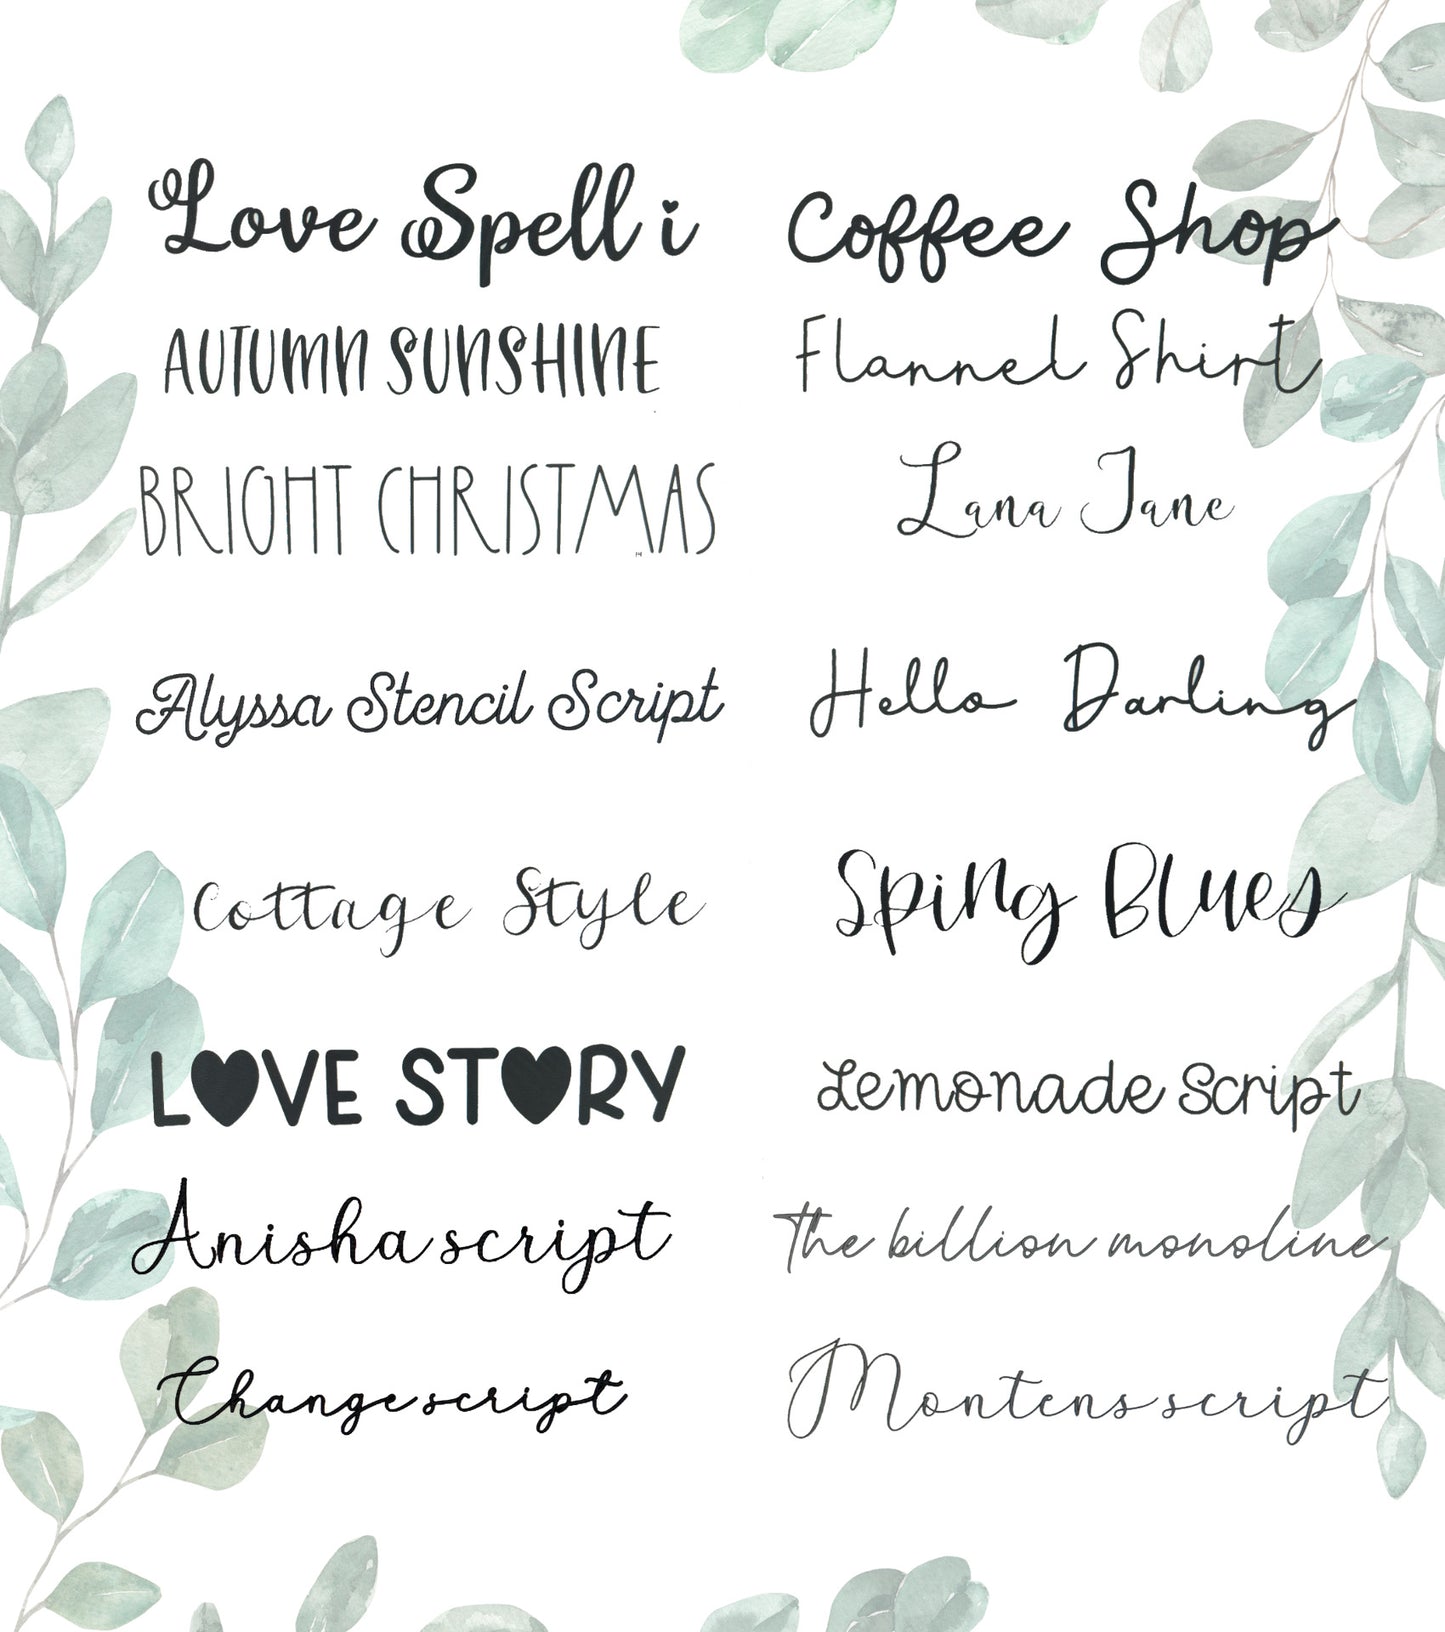 Love Spell i
Coffee Shop
AUTUMN SUNSHINE
Flannel Shirt
BRIGHT CHRISTMAS
Lana Jane
Alyssa Stencil Script
Hello Darling
Cottage Style
Sping Blues
LOVE STORY
Lemonade Script
Anisha script
the billion monoline
Change script
Montens script